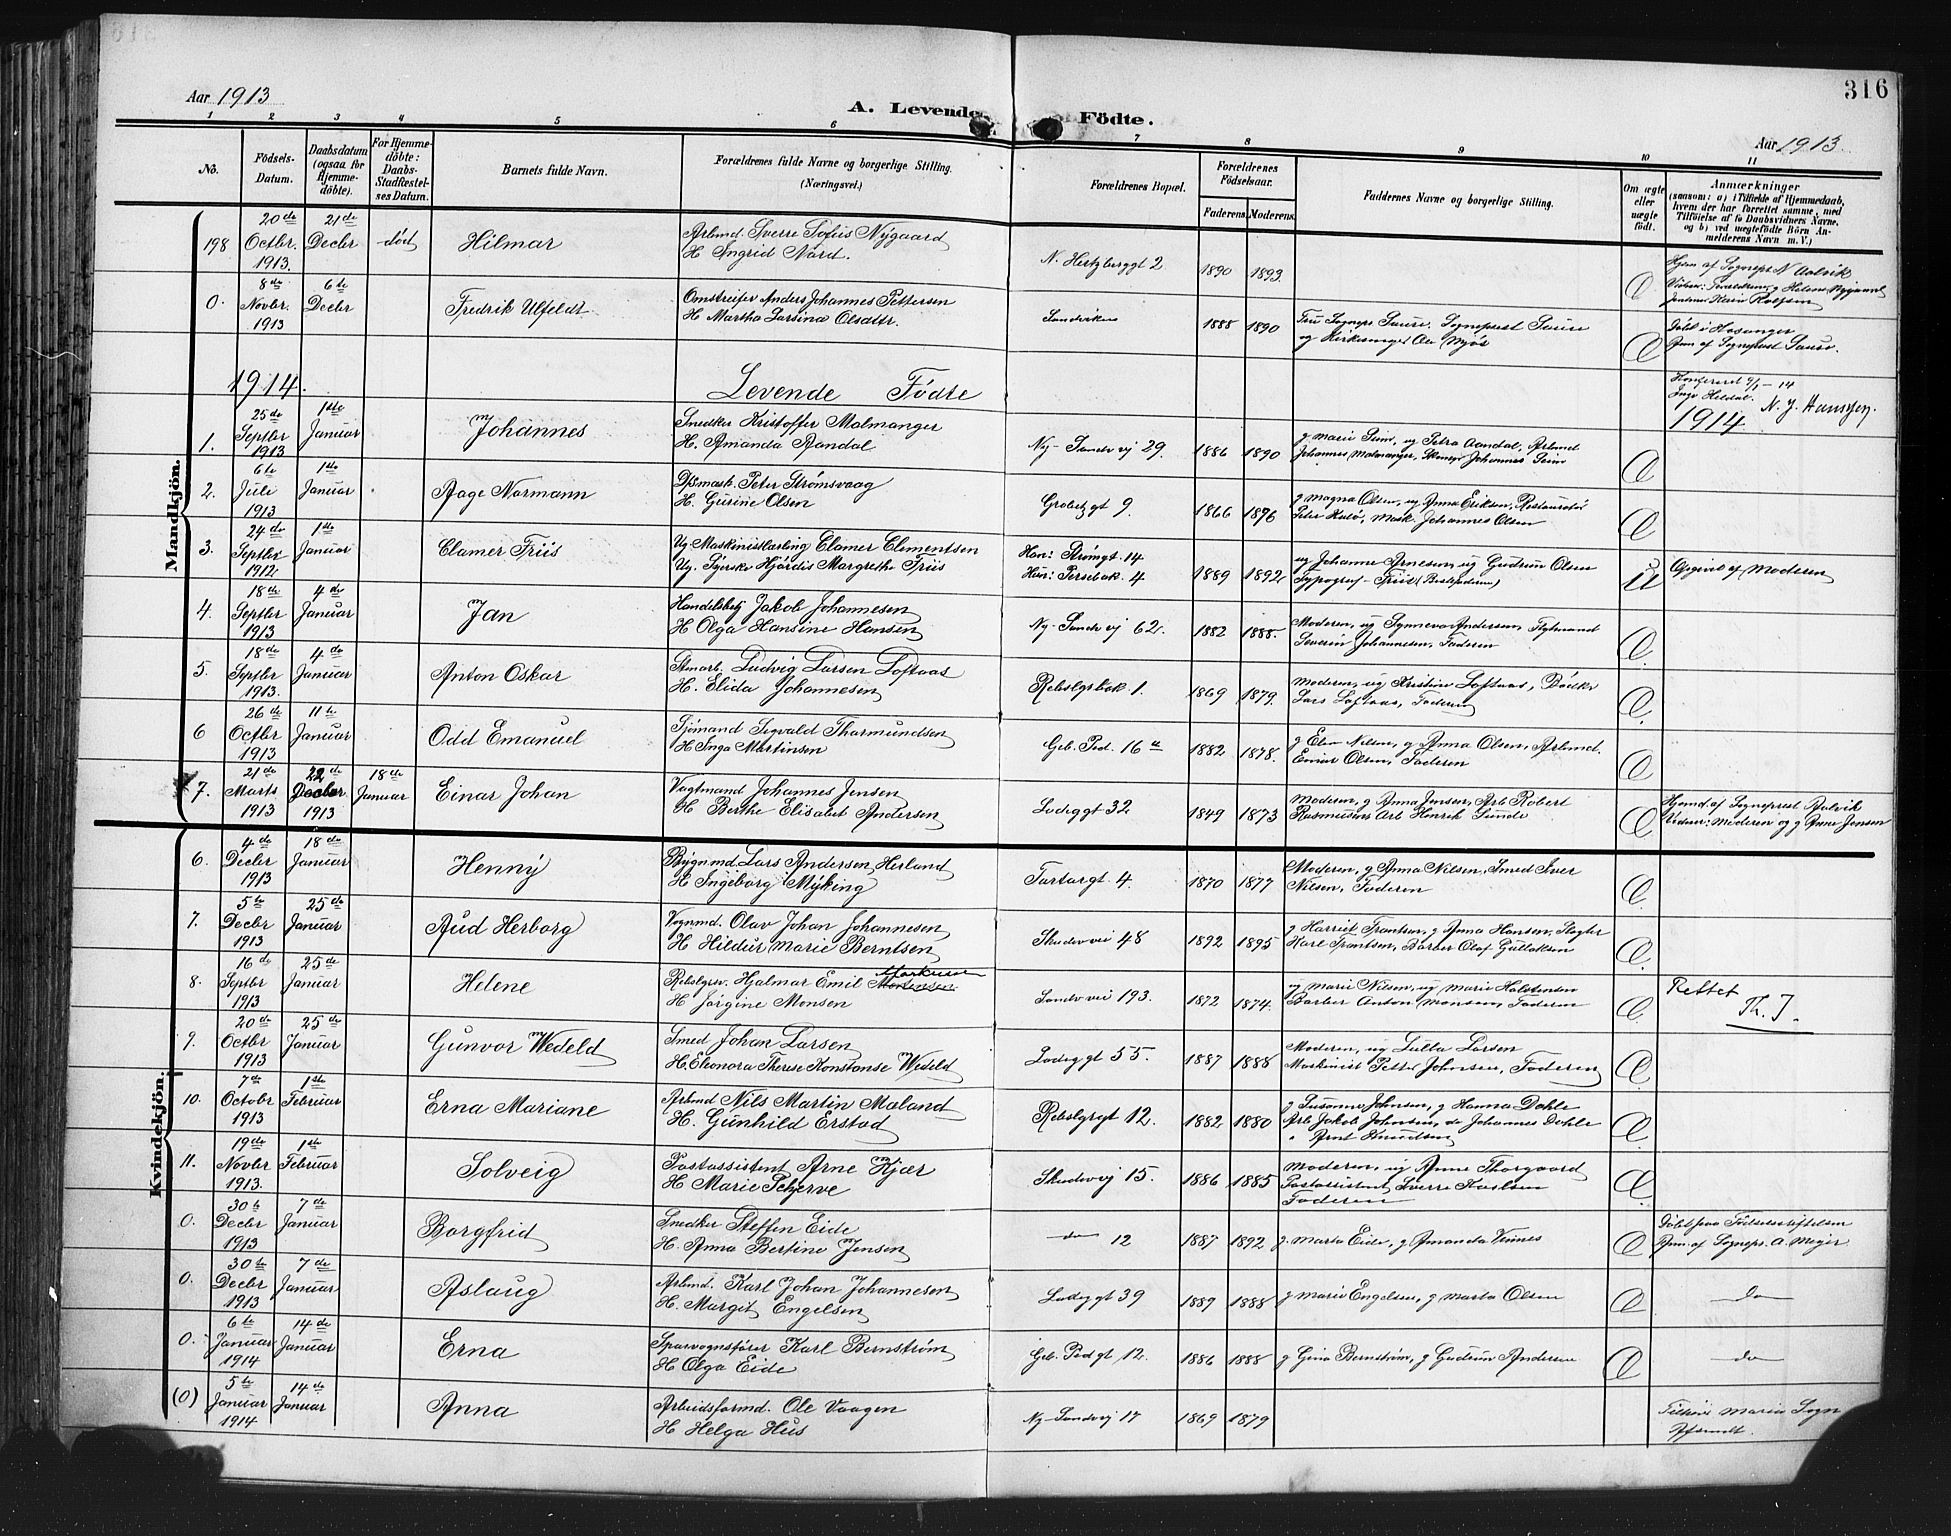 316
Aar 1913
A. Levende Födte.
Aar 1913
1 2 3 4 5 6 7 8 9 10 11
No.
Födsels-Datum.
Daabsdatum (ogsaa for Hjemmedöbte).
For Hjemmedöbte: Daabs-Stadfæstelses Datum.
Barnets fulde Navn.
Forældrenes fulde Navne og borgerlige Stilling. (Næringsvei.)
Forældrenes Bopæl.
Forældrenes Födselsaar.
Faderens. Moderens.
Faddernes Navne og borgerlige Stilling.
Om ægte eller uægte födt.
Anmærkninger
(saasom: a) i Tilfælde af Hjemmedaab,
hvem der har forrettet samme, med
Tilföielse af to Daabsvidners Navne,
og b) ved uægtefödte Börn An-
melderens Navn m. V.)
Mandkjön.
198 20de Octbr. 1913. 21de Decbr död Hilmar
Arbmd. Sverre Tofius Nygaard
H Ingrid Nord.
N. Hertzberggt 2 1890 1893
Hjem af Sognepr N Aalvik
0. 8de Novbr. 1913 6te Decbr Fredrik Ulfeldt
Omstreifer Anders Johannes Pettersen
H Martha Larsine Olsdttr.
Sandviken 1888 1890
og Kirkesanger Ole Mjös
Döbt i Hosanger
Anm af Sogneprest
1914.
Levende Födte
Konfereret
N. J. Hanssen.
1914
1. 25de Septbr 1913 1ste Januar Johannes
Snedker Kristoffer Malmanger
H. Amanda Aandal
Ny-Sandvvj 29. 1886 1890
g Marie Seim, ug Petra Aandal, Arbmd
Johannes Malmanger, Johannes Seim
2. 6te Juli 1913 1ste Januar Aage Normann
Dpsmask. Peter Strömsvaag
H. Gusine Olsen
Grobetzgt 9. 1866 1876
g Magna Olsen, ug Anna Eriksen, Restauratör
Peter Hulö, Mask. Johannes Olsen
3. 24de Septbr 1912 1ste Januar Clamer Friis
Ug. Maskinistlærling Clamer Clementsen
Ug. Syerske Hjördis Margrethe Friis
Han: Strömgt. 14
Hun: Persebak. 4
1889 1892
ug Johanne Arnesen, ug Gudrun Olsen
Typograf Friis (Bestefaderen)
u Opgivet af Moderen
4. 18de Septbr 1913 4de Januar Jan
Handelsbtj Jakob Johannesen
H Olga Hansine Hansen
Ny-Sandvvj 62. 1882 1888.
Moderen, ug Synneva Andersen, Styrmand
Severin Johannesen, Faderen
5. 18de Septbr 1913. 4de Januar Anton Oskar
Stmarb. Ludvig Larsen Loftaas
H. Elida Johannesen
Rebslgrbak. 1. 1869 1879.
Moderen, ug Kristine Loftaas, Bödker
Lars Loftaas, Faderen
6 26de Octbr 1913 11te Januar Odd Emanuel
Sjömand Sigvald Thormundsen
H Inga Martinsen
Geb. Ped. 16a 1882 1878.
g Elen Nilsen, g Anna Olsen, Arbmd.
Einar Olsen, Faderen
7. 21de Marts 1913 22de Decbr 1913 18de Januar Einar Johan
Vagtmand Johannes Jensen
H Berthe Elisabet Andersen
Ladeggt 32 1849 1873
Moderen, g Anna Jensen, Arb Robert
Rasmussen, Arb Henrik Sunde
Hjemd af Sogneprest Aalvik
Vidner: Moderen og g Anne Jensen
Kvindekjön.
6. 4de Decbr 1913 18de Januar Henny
Bygnmd. Lars Andersen Herland
H Ingeborg Myking
Tartargt 4. 1870 1877
Moderen, g Anna Nilsen, Smed Iver
Nilsen, Faderen
7. 5te Decbr 1913 25de Januar Aud Herborg
Vognmd. Olav Johan Johannesen
H Hildur Marie Berntsen
Skudevvei 48 1892 1895
g Harriet Frantsen, g Anna Hansen, Slagter
Karl Frantsen, Barber Olaf Gullaksen
8. 16de Septbr 1913 25de Januar Helene
Rebslgrsv. Hjalmar Emil Mortensen Markussen
H Jörgine Monsen
Sandvvei 193. 1872 1874.
ug Marie Nilsen, ug Marie Halstensen
Barber Anton Monsen, Faderen
Rettet
Th. J.
9. 20de Octbr 1913 25de Januar Gunvor Wedeld
Smed Johan Larsen
H. Eleonora Therese Konstanse Wedeld
Ladeggt 55. 1887 1888
Moderen, ug Lulla Larsen
Maskinist Petter Johnsen, Faderen
10. 7de Octobr 1913 1ste Februar Erna Mariane
Arbmd Nils Martin Maland
H. Gunhild Erstad
Rebslgrgt 12. 1882 1880
g Susanne Johnsen, g Hanna Dahle
Arb Jakob Johnsen, do Johannes Dahle
" Arnt Knudsen
11. 19de Novbr 1913. 1ste Februar Solveig
Postassistent Arne Kjær
H Marie Scherve
Skudevvj 15. 1886 1885
Moderen, ug Anne Thorgaard
Postassistent Sverre Karlsen
Faderen
0. 30te Decbr 1913 7de Januar Borgfrid
Snedker Steffen Eide
H. Anna Bertine Jensen
do 12 1887 1892
g. Marta Eide, g Amanda Vinnes
Döbt paa Födselsstiftelsen
Anm. af Sognepr. A. Meyer
0. 30te Decbr 1913 7de Januar Aslaug
Arbmd. Karl Johan Johannesen
H. Margit Engelsen
Ladeggt 39 1889 1888
g Marie Engelsen, g Marta Olsen
do
0. 6te Januar 1914 14de Januar Erna
Sporvognsförer Karl Bernström
H Olga Eide
Geb. Pedgt 12. 1886 1888
g Gina Bernström, g Gudrun Andersen
do
(0) 5te Januar 1914 14de Januar Anna
Arbeidsformd. Ole Vaagen
H Helga Hus
Ny-Sandvvj 17 1869 1879
Tilhörer Maria Sogn
Afsendt.